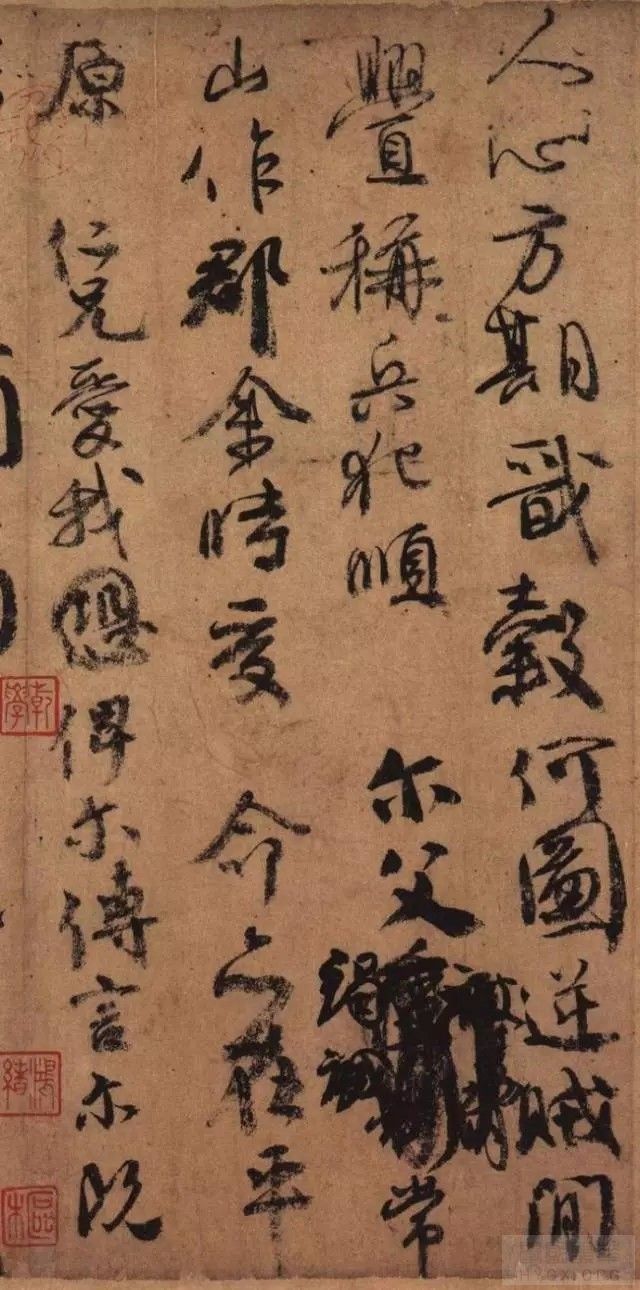 人心方期戩穀何圖逆賊閒
釁稱兵犯順尒父竭誠常
山作郡余時受命亦在平
原仁兄愛我恐俾尒傳言尒既